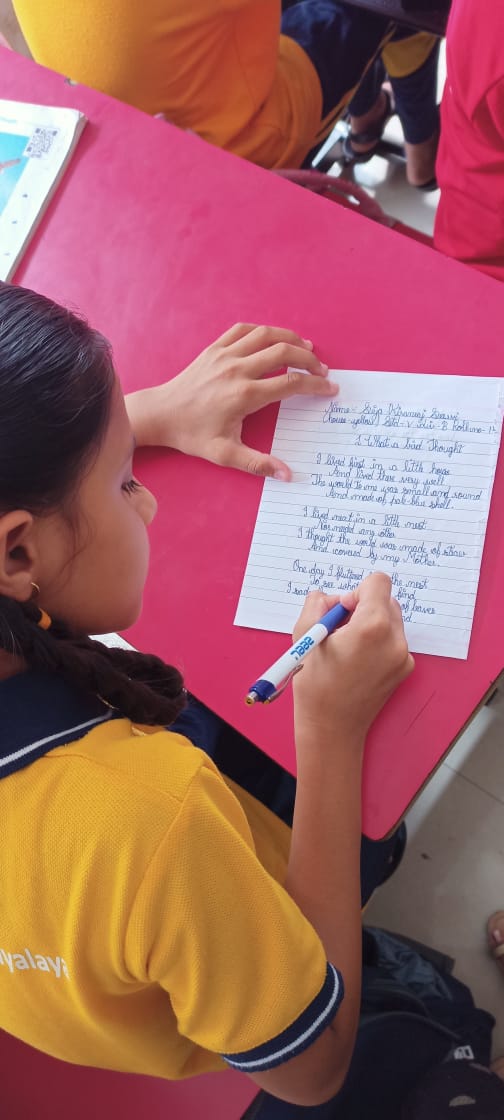 Name:-
House-yellow, Std-V Div-B Roll no-12
1. What a bird Thought
I lived first in a little house
And lived there very well
The world to me was small and round
And made of pale blue shell.
I lived next in a little nest
Nor needed any other
I thought the world was made of straw
And covered by my Mother.
One day I fluttered the nest
To see what find
I said of leaves